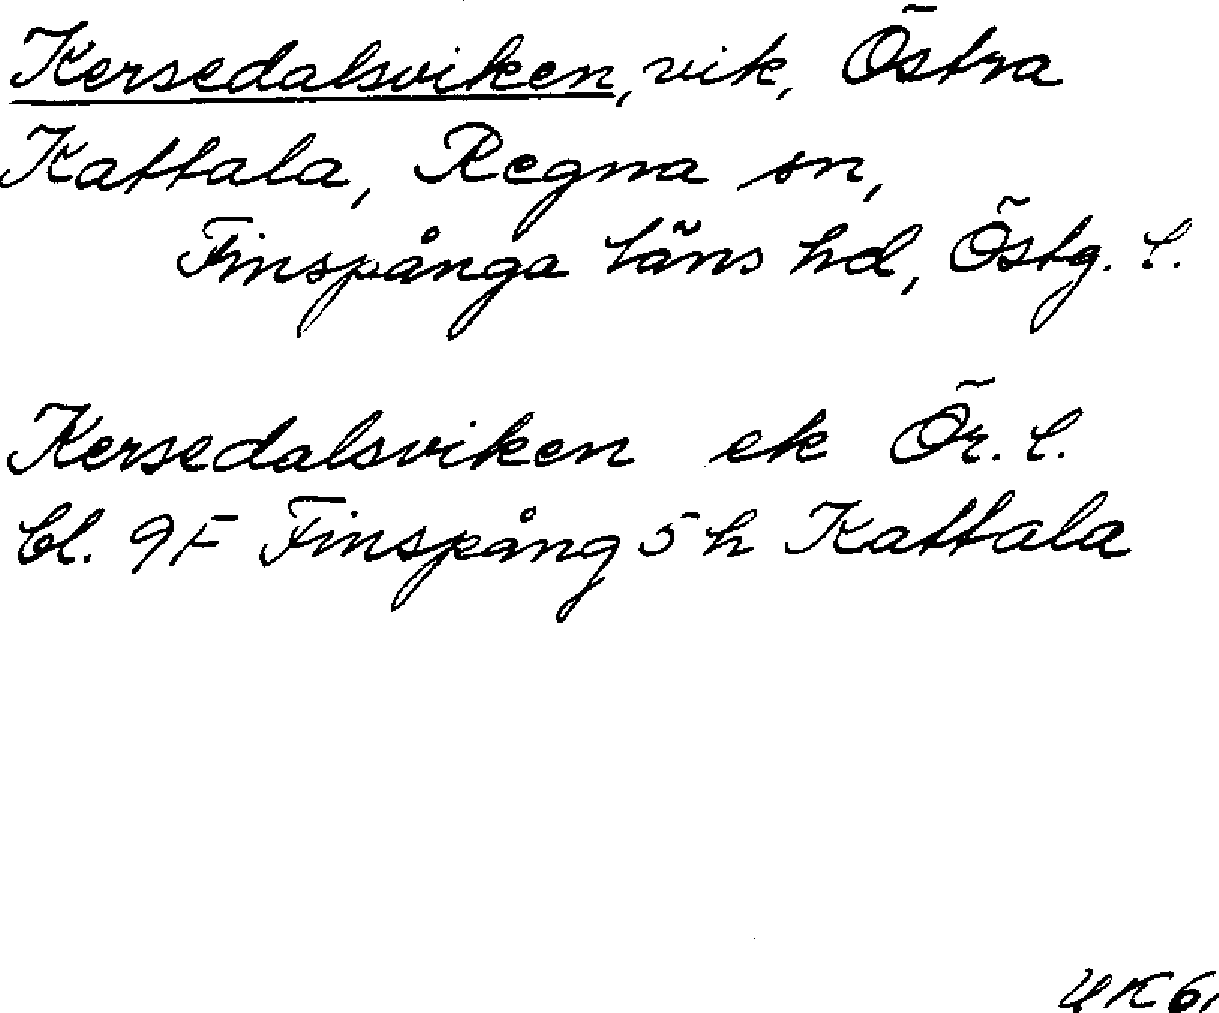 Kersedalsviken, vik, Östra
Kattala, Regna sn,
Finspånga läns hd, Östg. l.
Kersedalsviken ek Ör. l.
bl. 9F Finspång 5 h Kattala